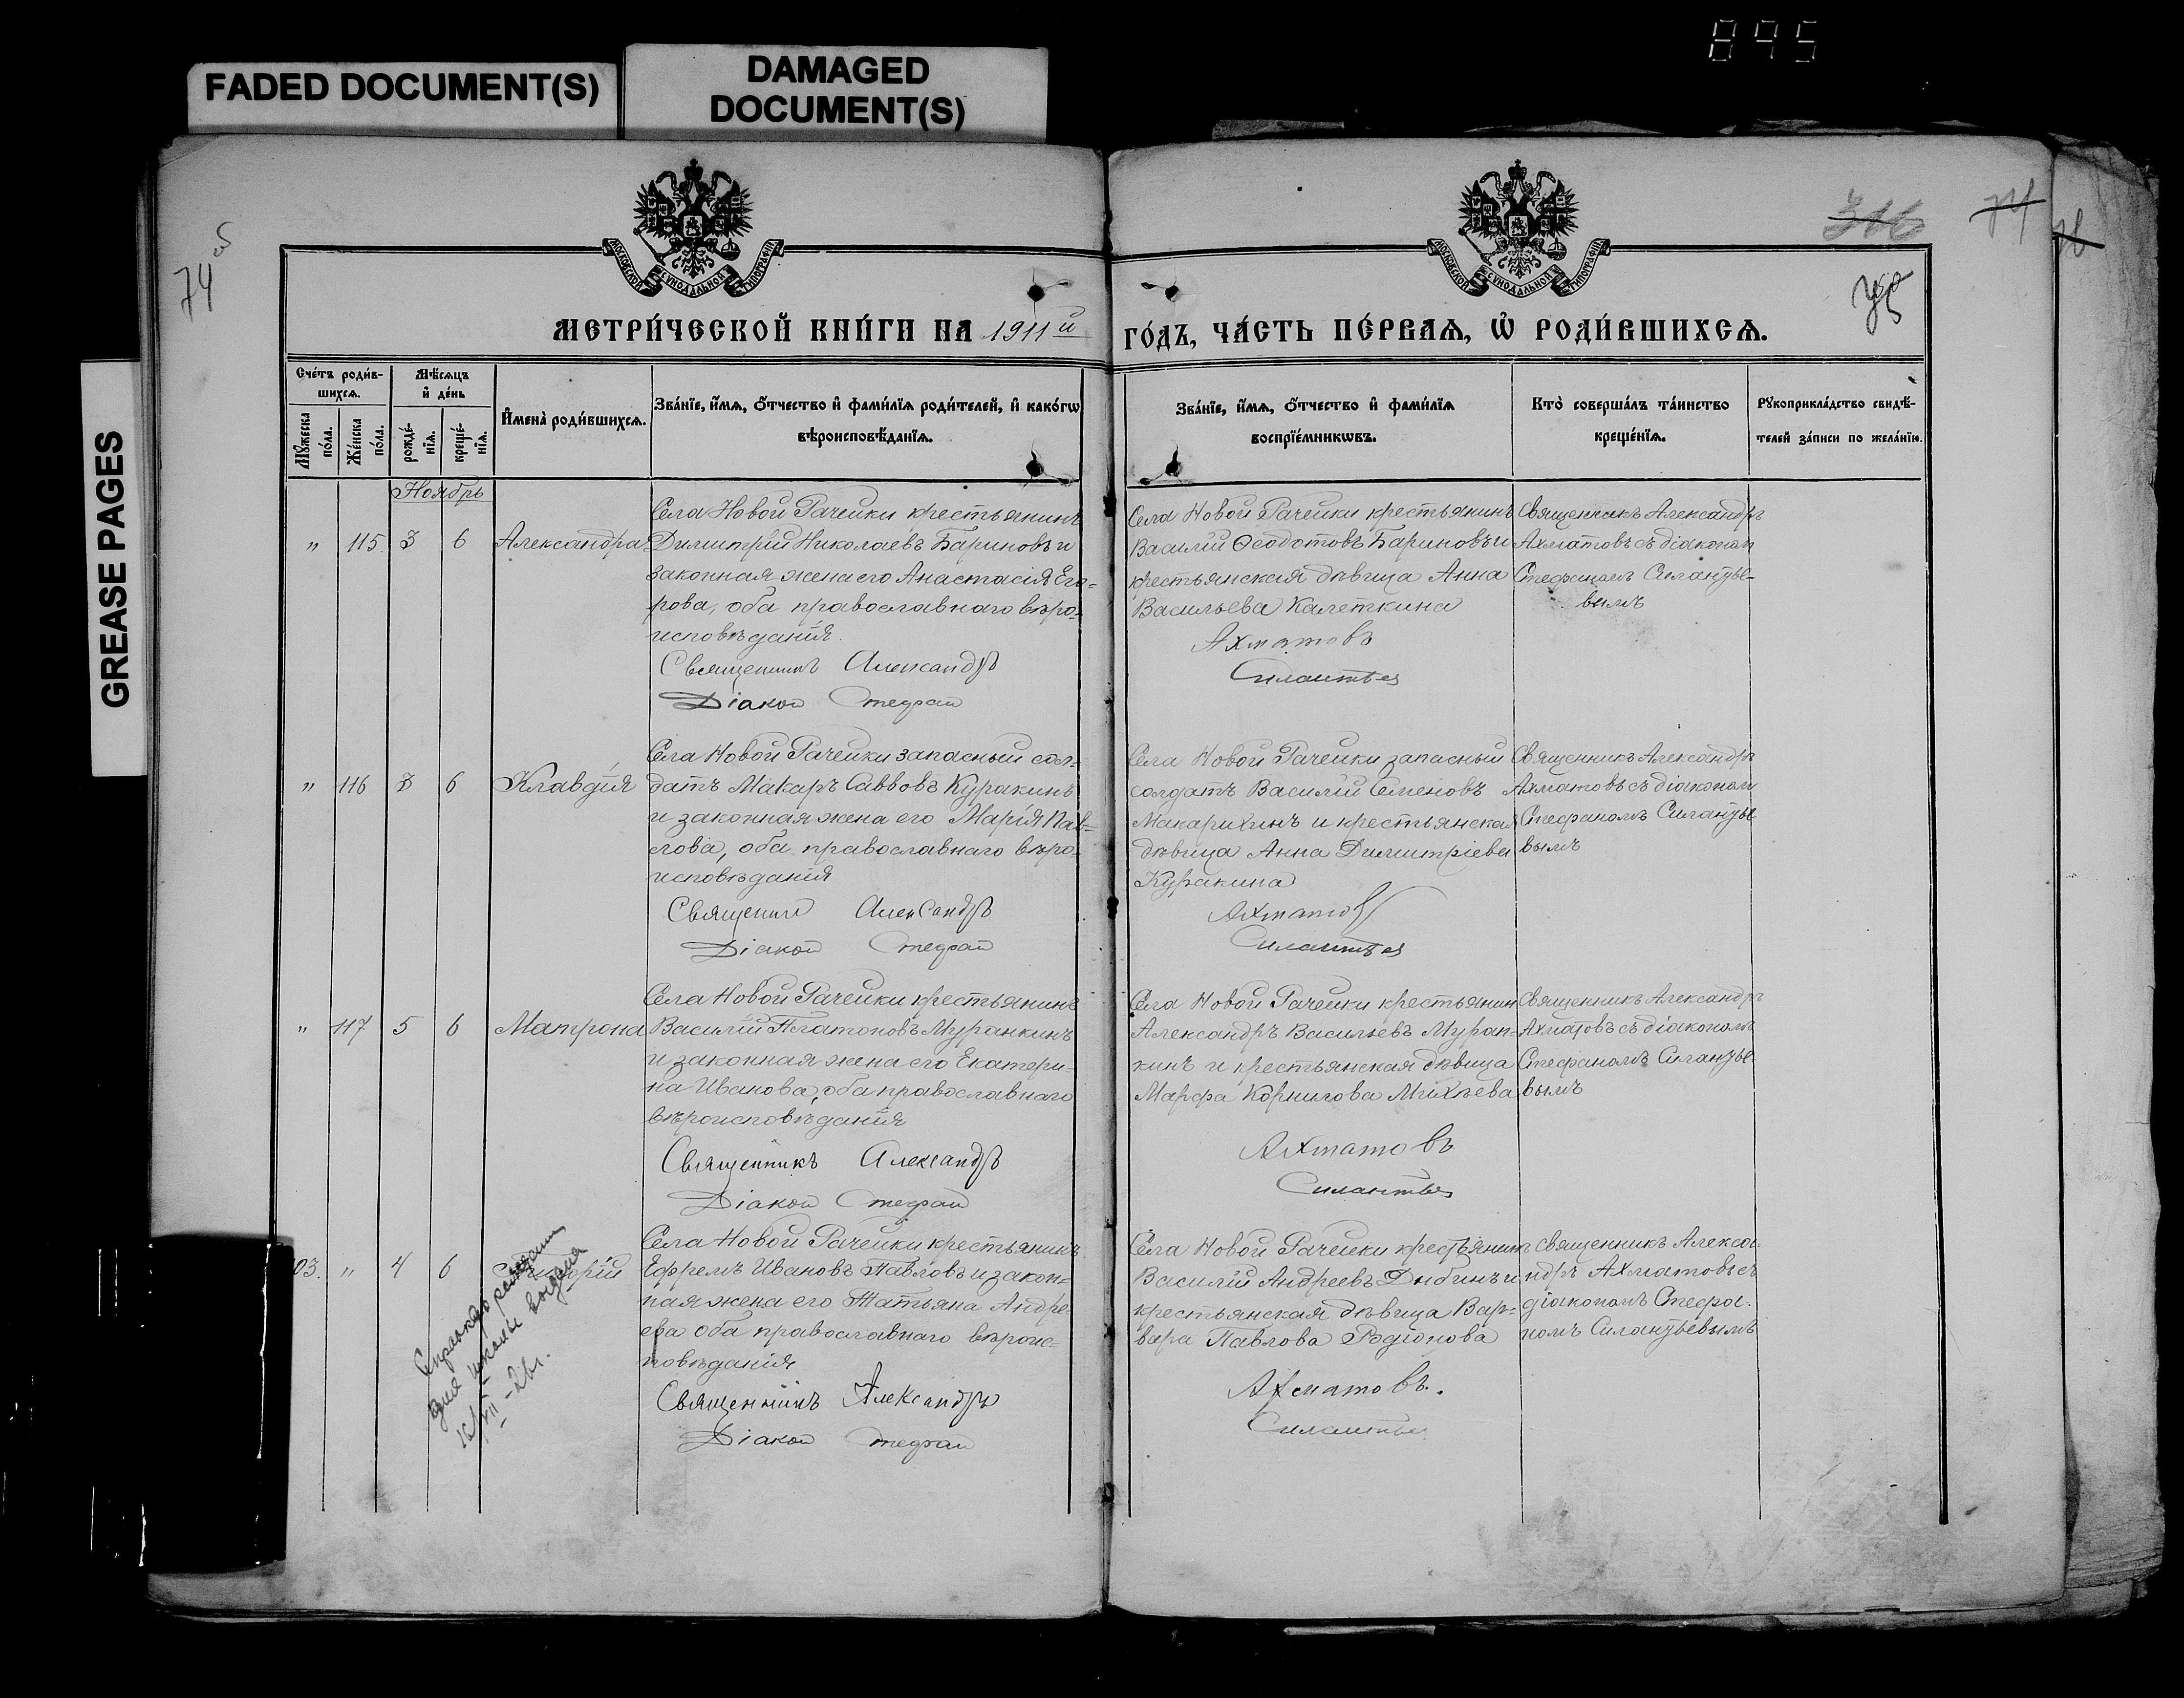 895
FADED DOCUMENT(S)
DAMAGED
DOCUMENT(S)
GREASE PAGES
74 об
316
74
МОСКОВСКОЙ СѴНОДАЛЬНОЙ ТИПОГРАФІИ
МОСКОВСКОЙ СѴНОДАЛЬНОЙ ТИПОГРАФІИ
МЕТРИ́ЧЕСКОЙ КНИ́ГИ НА 1911 й
ГО́ДЪ, ЧА́СТЬ ПЕ́РВАѦ, Ѡ҆ РОДИ́ВШИХСѦ.
Сче́тъ роди́в-
шихсѧ.
Мꙋ́жеска
по́ла.
Же́нска
по́ла.
Мѣ́сѧцъ
и҆ де́нь
рожде́-
нїѧ.
креще́-
нїѧ.
И҆мена̀ роди́вшихсѧ.
Зва́нїе, и҆́мѧ, ѻ҆́тчество и҆ фами́лїѧ роди́телей, и҆ како́гѡ
вѣроисповѣ́данїѧ.
Зва́нїе, и҆́мѧ, ѻ҆́тчество и҆ фами́лїѧ
воспрїе́мникѡвъ.
Кто̀ соверша́лъ та́инство
креще́нїѧ.
Рꙋкоприкла́дство свидѣ́-
телей за́писи по жела́нїю.
Ноябрь
" 115. 3 6 Александра
Села Новой Рачейки крестьянинъ
Димитрій Николаевъ Бариновъ и
законная жена его Анастасія Его=
рова, оба православнаго вѣро-
исповѣданія.
Священникъ Александръ
Діакон Стефан
Села Новой Рачейки крестьянинъ
Василій Ѳеодотовъ Бариновъ и
крестьянская дѣвица Анна
Васильева Калеткина
Ахматовъ
Силантьев
Священникъ Александръ
Ахматовъ съ діакономъ
Стефаномъ Силантье-
вымъ
" 116 3 6 Клавдія
Села Новой Рачейки запасный сол-
датъ Макаръ Саввовъ Куракинъ
и законная жена его Марія Пав=
лова, оба православнаго вѣро-
исповѣданія
Священник Александръ
Діакон Стефан
Села Новой Рачейки запасный
солдатъ Василій Семеновъ
Макарихинъ и крестьянская
дѣвица Анна Димитріева
Куракина
Ахматов
Силантьев
Священникъ Александръ
Ахматовъ съ діакономъ
Стефаномъ Силантье
вымъ
" 117 5 6 Матрона
Села Новой Рачейки крестьянинъ
Василій Платоновъ Муранкинъ
и законная жена его Екатери-
на Иванова, оба православнаго
вѣроисповѣданія
Священникъ Александръ
Діакон Стефан
Села Новой Рачейки крестьянин
Александръ Васильевъ Муран-
кинъ и крестьянская дѣвица
Марфа Корнилова Михѣева
Ахматовъ
Силантьев
Священникъ Александръ
Ахматовъ съ діакономъ
Стефаномъ Силантье-
вымъ
03. " 4 6
Села Новой Рачейки крестьянинъ
Ефремъ Ивановъ Павловъ и закон=
ная жена его Татьяна Андре-
ева оба православнаго вѣроис=
повѣданія
Священникъ Александръ
Діакон Стефан
Села Новой Рачейки крестьянинъ
Василій Андреевъ Дыбинъ и
крестьянская дѣвица Вар=
вара Павлова Родіонова
Ахматовъ.
Силантьев
Священникъ Алекса-
ндръ Ахматовъ съ
діакономъ Стефа-
номъ Силантьевымъ
для школы выдана